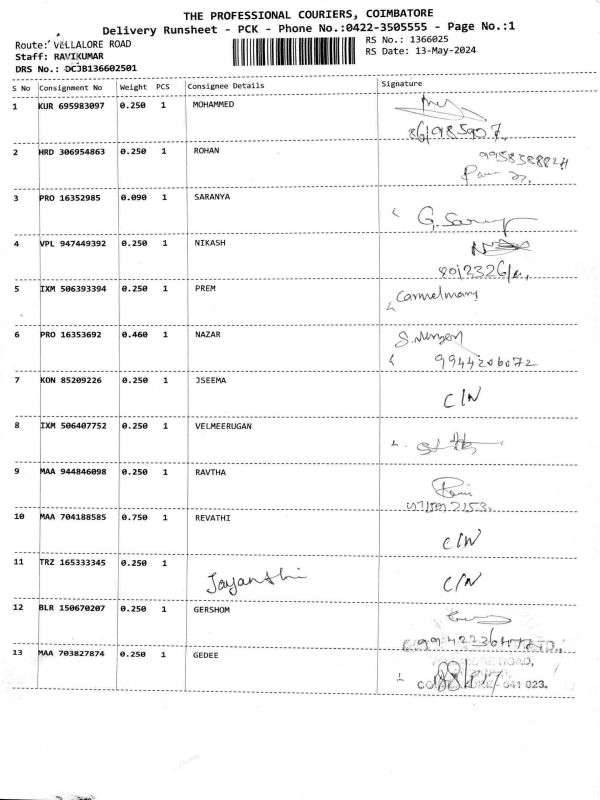 THE PROFESSIONAL COURIERS, COIMBATORE
Delivery Runsheet - PCK - Phone No.:0422-3505555 - Page No.:1
Route: VELLALORE ROAD
RS No.: 1366025
Staff: RAVIKUMAR
RS Date: 13-May-2024
DRS No.: DCJB136602501
S No Consignment No Weight PCS Consignee Details Signature
1 KUR 695983097 0.250 1 MOHAMMED
2 HRD 306954863 0.250 1 ROHAN
3 PRO 16352985 0.090 1 SARANYA
4 VPL 947449392 0.250 1 NIKASH
5 IXM 506393394 0.250 1 PREM
Carmelmary
6 PRO 16353692 0.460 1 NAZAR
9944206072
7 KON 85209226 0.250 1 JSEEMA
C/N
8 IXM 506407752 0.250 1 VELMEERUGAN
9 MAA 944846098 0.250 1 RAVTHA
10 MAA 704188585 0.750 1 REVATHI
C/N
11 TRZ 165333345 0.250 1
Jayanthi C/N
12 BLR 150670207 0.250 1 GERSHOM
13 MAA 703827874 0.250 1 GEDEE
ROAD,
641 023.